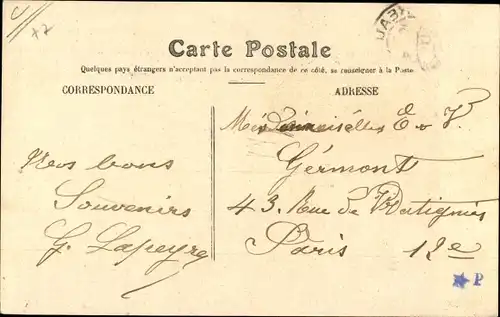 Carte Postale
Quelques pays étrangers n'acceptant pas la correspondance de ce côté, se renseigner à la Poste
CORRESPONDANCE
ADRESSE
Mes bons
Souvenirs
G. Lapeyre
Mesdemoiselles E et V.
Germont
43. Rue de Batignies
Paris 12e
P